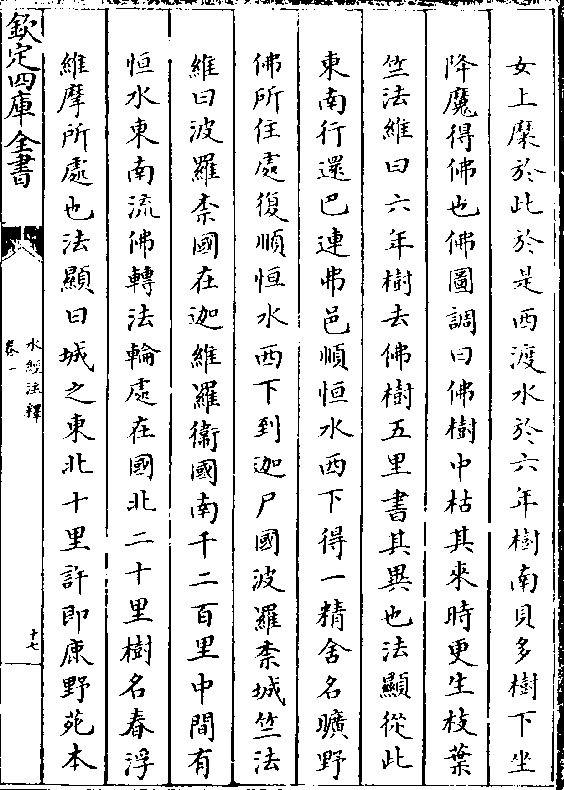 女上糜於此於是西渡水於六年樹南貝多樹下坐
降魔得佛也佛圖調曰佛樹中枯其來時更生枝葉
竺法維曰六年樹去佛樹五里書其異也法顯從此
東南行還巴連弗邑順恒水西下得一精舍名曠野
佛所住處復順恒水西下到迦尸國波羅柰城竺法
維曰波羅柰國在迦維羅衛國南千二百里中間有
恒水東南流佛轉法輪處在國北二十里樹名春浮
維摩所處也法顯曰城之東北十里許即鹿野苑本
欽定四庫全書
水經注釋
卷一
十七